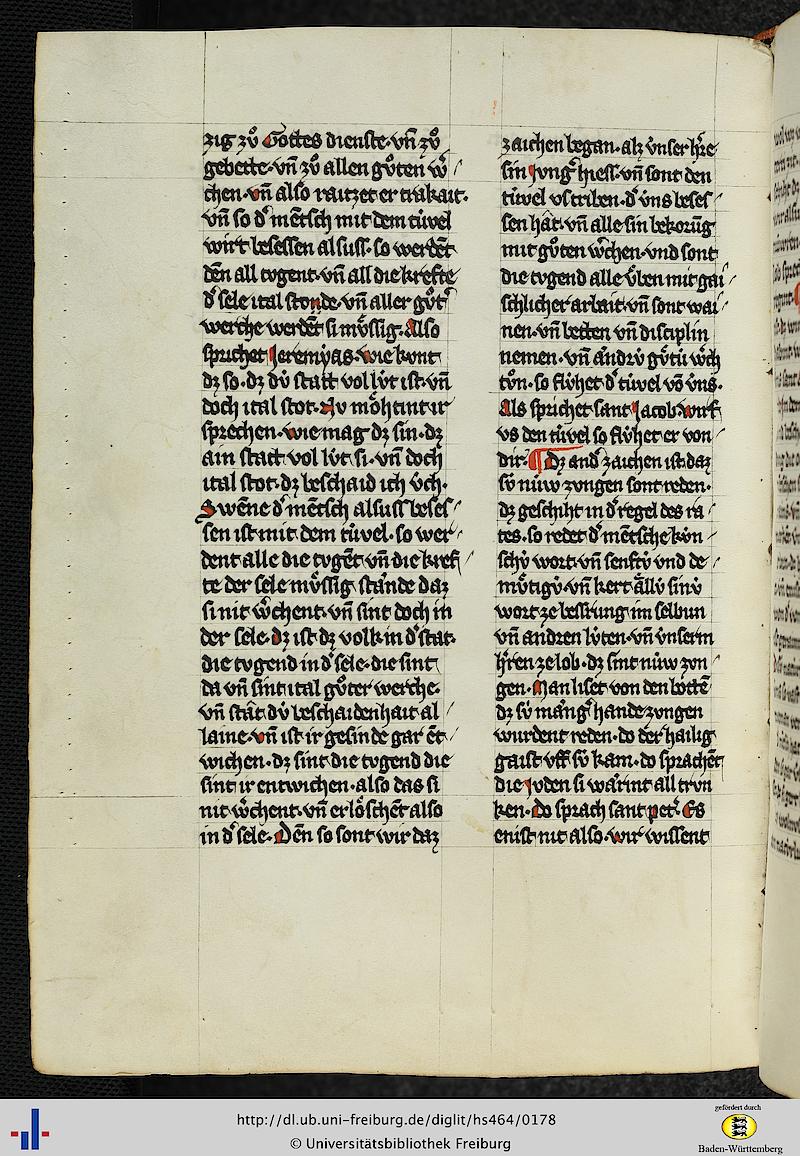 zig zuͦ Gottes dienste·vn̄ zuͦ
gebette·vn̄ zuͦ allen guͦten w̾
chen·vn̄ also raitzet er trakait·
vn̄ so d̾ mētsch mit dem tüvel
wirt besessen alsuss·so werdēt
dēn all tvgent·vn̄ all die krefte
d̾ sele ital stonde·vn̄ aller guͦt̾
werche werdēt si muͤssig·Also
sprichet Jeremyas·wie kvnt
dz so·dz dv̍ statt vol lv̍t ist·vn̄
doch ital stot·Nv moͤhtint ir
sprechen·wie mag dz sin·dz
ain statt vol lv̍t si·vn̄ doch
ital stot·dz beschaid ich v̍ch·
Swēne d̾ mētsch alsuss beses
sen ist mit dem tüvel·so wer
dent alle die tvgēt·vn̄ die kref
te der sele muͤssig stande daz
si nit w̾chent·vn̄ sint doch in
der sele·dz ist dz volk in d̾ stat·
die tvgend in d̾ sele·die sint
da vn̄ sint ital guͦter werche·
vn̄ stât dv̍ beschaidenhait al
laine·vn̄ ist ir gesinde gar ēt
wichen·dz sint die tvgend die
sint ir entwichen·also das si
nit w̾chent·vn̄ erloͤschēt also
in d̾ sele·Dēn so sont wir daz
zaichen began·alz v̍nser h̾re
sin Jvng̾ hiess·vn̄ sont den
tüvel vstriben·d̾ v̍ns beses
sen hât·vn̄ alle sin bekorūg
mit guͦten w̾chen·vnd sont
die tvgend alle v̍ben mit gai
schlicher arbait·vn̄ sont wai
nen·vn̄ betten vn̄ disciplin
nemen·vn̄ andrv̍ guͦtü w̾ch
tuͦn·so flv̍het d̾ tüvel vō v̍ns·
Als sprichet sant Jacob·wirf
vs den tüvel so flv̍het er von
dir·¶Dz and̾ zaichen ist·daz
sv̍ nüw zvngen sont reden·
dz geschiht in d̾ regel des ra
tes·so redet d̾ mētsche kvn
schv̍ wort·vn̄ senftv̍ vnd de
muͤtigv̍·vn̄ kert ällv̍ sinv̍
wort ze bessrung im selbun
vn̄ andren lv̍ten·vn̄ v̍nserm
h̾ren ze lob·dz sint nüw zvn
gen·Man liset von den bottē
dz sv̍ mang̾ hande zvngen
wurdent reden·do der hailig
gaist vff sv̍ kam·do sprachēt
die Jvden si wârint all trvn
ken·Do sprach sant pet̾·Es
enist nit also·wir wissent
http://dl.ub.uni-freiburg.de/diglit/hs464/0178
© Universitätsbibliothek Freiburg
gefördert durch
Baden-Württemberg